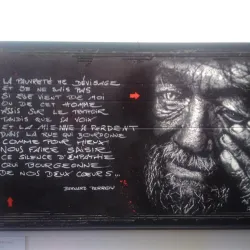 LA PAUVRETÉ ME DÉVISAGE
ET JE NE SAIS PAS
SI ELLE VIENT DE MOI
OU DE CET HOMME
ASSIS SUR LE TROTTOIR
TANDIS QUE SA VOIX
ET LA MIENNE SE PERDENT
DANS LA RUE QUI BOURDONNE
COMME POUR MIEUX
NOUS FAIRE SAISIR
CE SILENCE D'EMPATHIE
QUI BOURGEONNE
DE NOS DEUX CŒURS...